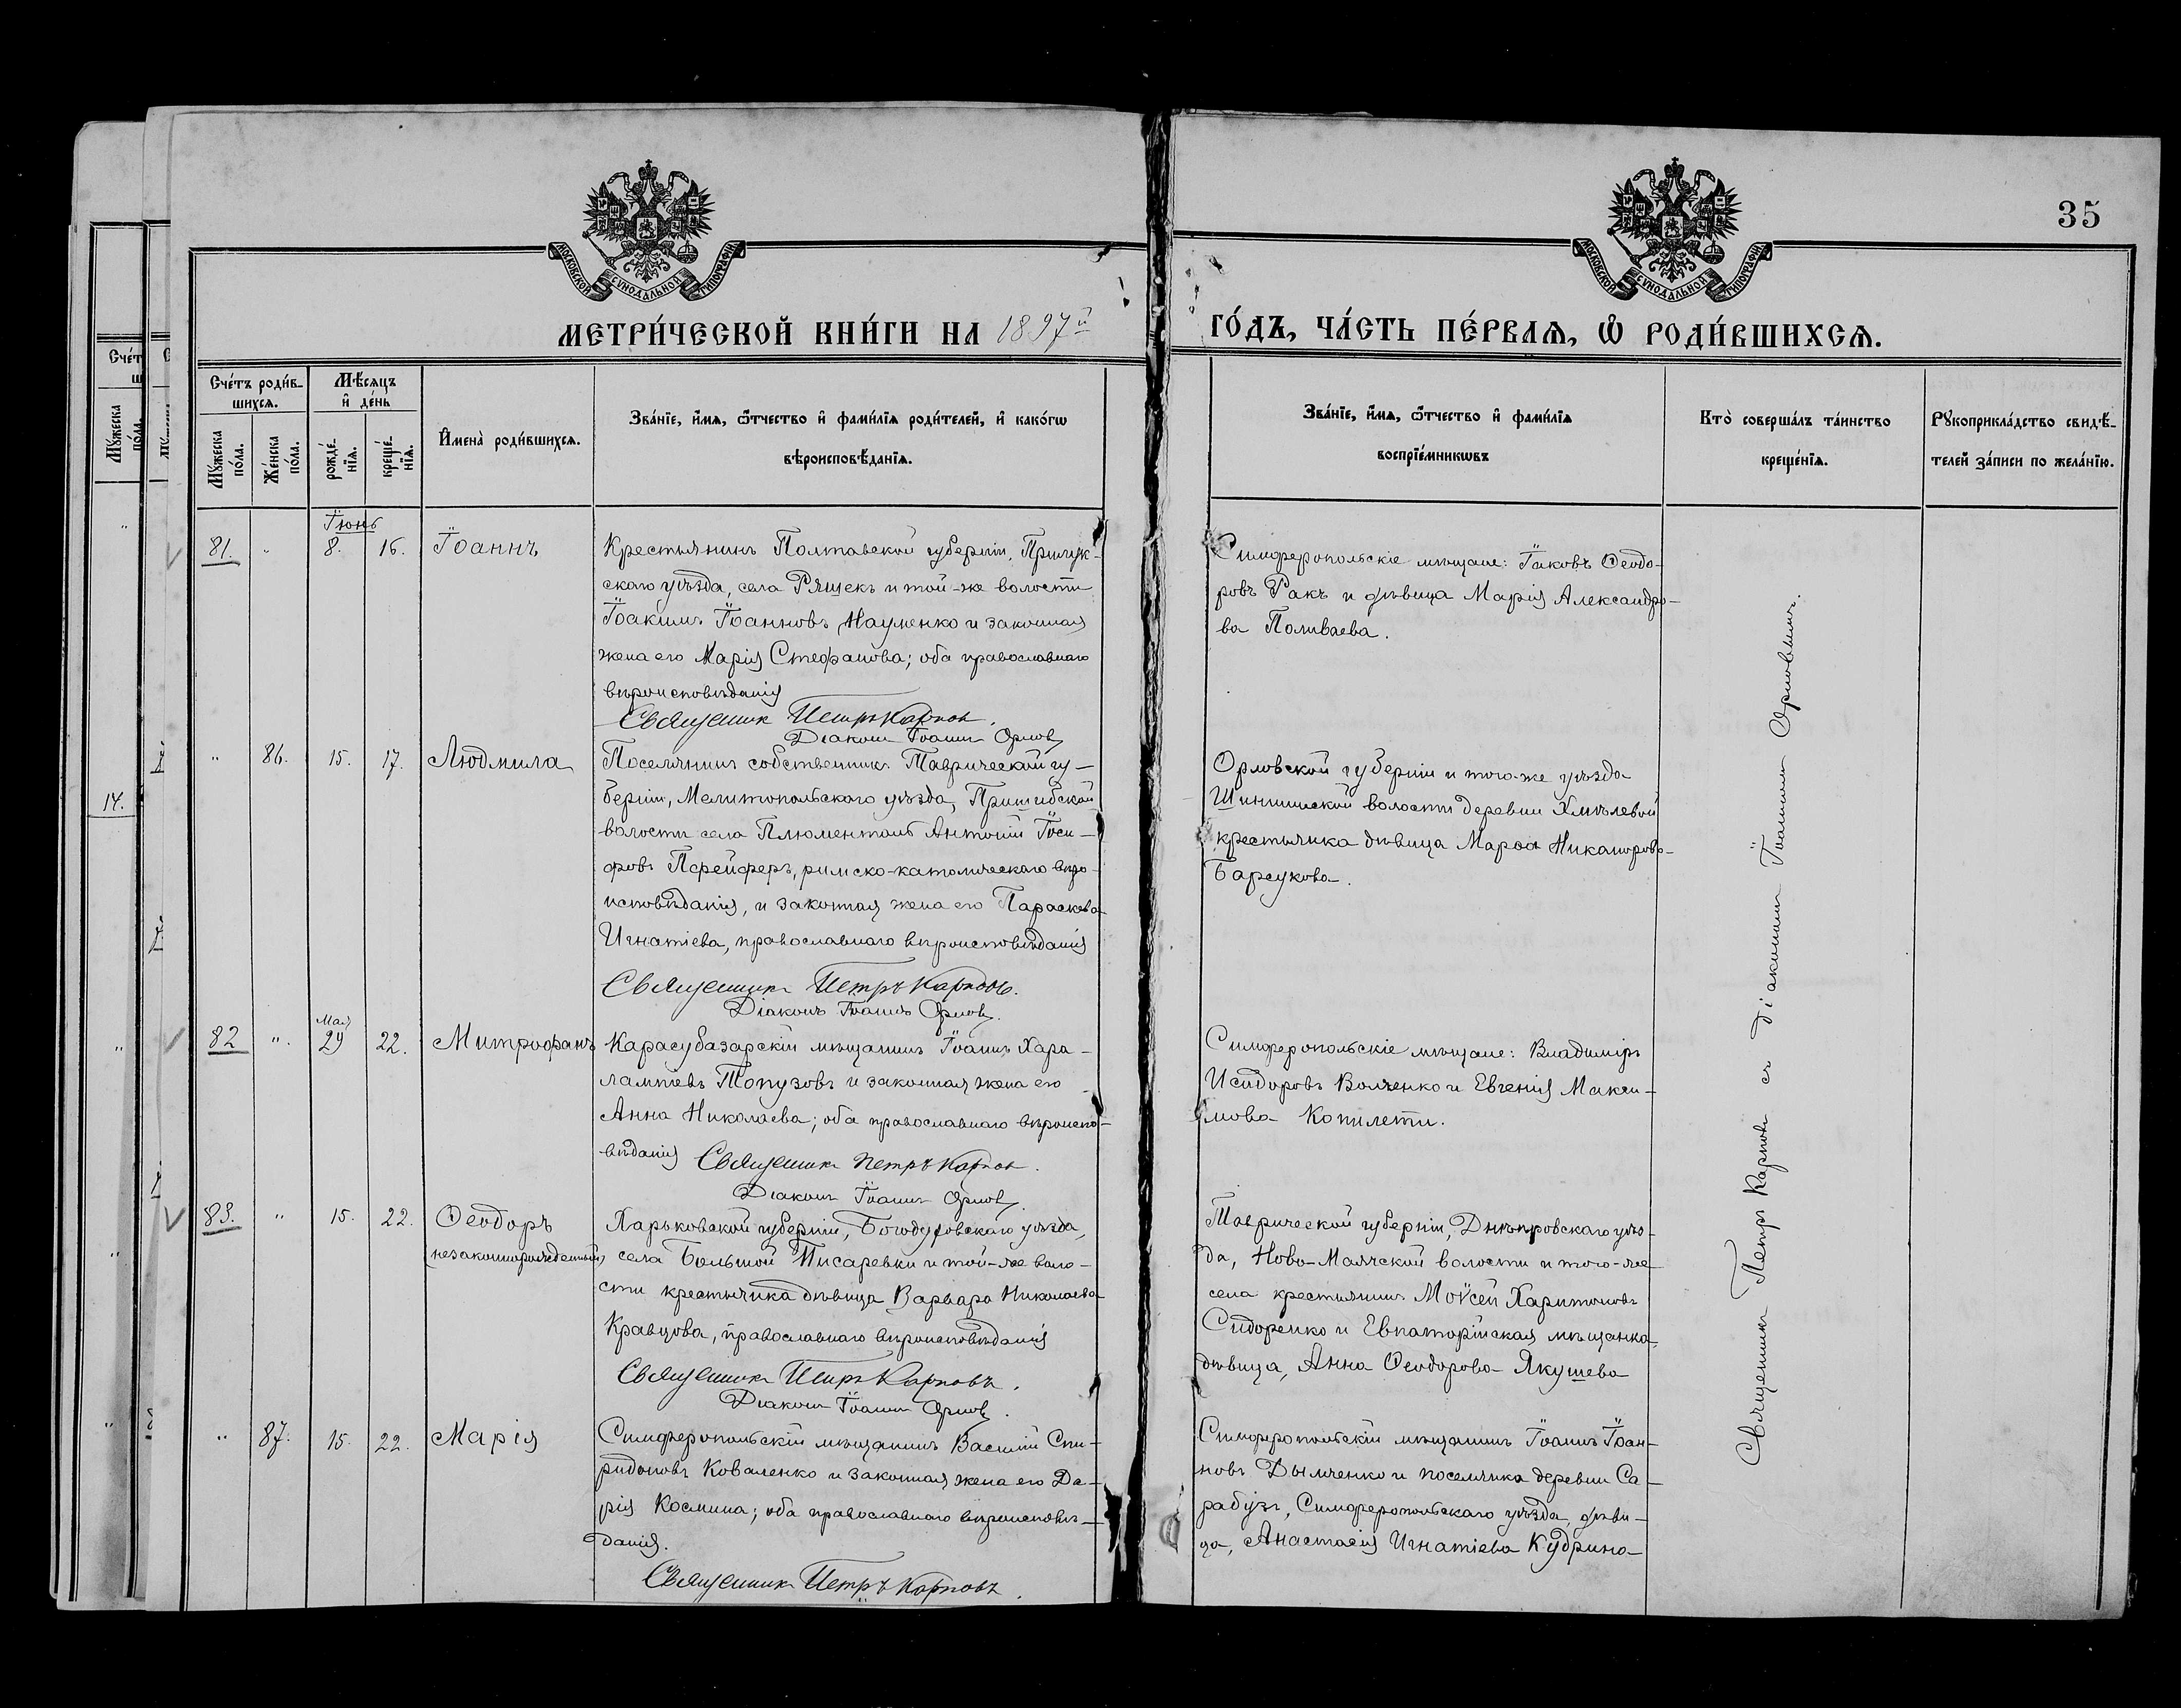 35
МОСКОВСКОЙ СѴНОДАЛЬНОЙ ТИПОГРАФІИ
МОСКОВСКОЙ СѴНОДАЛЬНОЙ ТИПОГРАФІИ
МЕТРИ́ЧЕСКОЙ КНИ́ГИ НА 1897й
ГО́ДЪ, ЧА́СТЬ ПЕ́РВАѦ, Ѡ РОДИ́ВШИХСѦ.
Сче́тъ роди́в-
шихсѧ.
Мѣ́сѧцъ
и де́нь
Мꙋ́жеска
по́ла.
Же́нска
по́ла.
рожде́-
нїѧ.
креще́-
нїѧ.
Имена̀ роди́вшихсѧ.
Зва́нїе, и́мѧ, ѻ́тчество и фами́лїѧ роди́телей, и како́гѡ
вѣроисповѣ́данїѧ.
Зва́нїе, и́мѧ, ѻ́тчество и фами́лїѧ
воспрїе́мникѡвъ
Кто̀ соверша́лъ та́инство
креще́нїѧ.
Рꙋкоприкла́дство свидѣ́-
телей за́писи по жела́нїю.
Іюнь
81. " 8. 16. Іоаннъ
Крестьянинъ Полтавской губерніи, Прилук-
скаго уѣзда, села Ряшекъ и той-же волости
Іоакимъ Іоанновъ Науменко и законная
жена его Марія Стефанова; оба православнаго
вѣроисповѣданія
Священникъ Петръ Карповъ.
Діаконъ Іоаннъ Орловъ
Симферопольскіе мѣщане: Іаковъ Ѳеодо-
ровъ Ракъ и дѣвица Марія Александро-
ва Поливаева.
" 86. 15. 17. Людмила
Поселянинъ собственникъ Таврической гу-
берніи, Мелитопольскаго уѣзда, Пришибской
волости села Плюменталь Антоній Іоси-
фовъ Пфейферъ, римско-католическаго вѣро-
исповѣданія, и законная жена его Параскева
Игнатіева, православнаго вѣроисповѣданія
Священникъ Петръ Карповъ.
Діаконъ Іоаннъ Орловъ.
Орловской губерніи и того-же уѣзда
волости деревни Хмѣлевой
крестьянка дѣвица Марѳа Никанорова
Барсукова.
Мая
82 ". 29 22. Митрофанъ
Карасубазарскій мѣщанинъ Іоаннъ Хара-
лампіевъ Топузовъ и законная жена его
Анна Николаева; оба православнаго вѣроиспо-
вѣданія Священникъ Петръ Карповъ.
Діаконъ Іоаннъ Орловъ.
Симферопольскіе мѣщане: Владиміръ
Исидоровъ Волченко и Евгенія Макси-
мова Копилети.
83. " 15. 22. Ѳеодоръ
(незаконнорожденный)
Харьковской губерніи, Богодуховскаго уѣзда,
села Большой Писаревки и той-же воло-
сти крестьянка дѣвица Варвара Николаева
Кравцова, православнаго вѣроисповѣданія
Священникъ Петръ Карповъ.
Діаконъ Іоаннъ Орловъ.
Таврической губерніи, Днѣпровскаго уѣз-
да, Ново-Маячской волости и того-же
села крестьянинъ Моѵсей Харитоновъ
Сидоренко и Евпаторійская мѣщанка,
дѣвица, Анна Ѳеодорова Якушева
" 87. 15. 22. Марія
Симферопольскій мѣщанинъ Василій Спи-
ридоновъ Коваленко и законная жена его Да-
рія Космина; оба православнаго вѣроисповѣ-
данія.
Священникъ Петръ Карповъ.
Симферопольскій мѣщанинъ Іоаннъ Іоан-
новъ Дымченко и поселянка деревни Са-
рабузъ, Симферопольскаго уѣзда, дѣви-
ца, Анастасія Игнатіева Кудрина
Священникъ Петръ Карповъ съ діакономъ Іоанномъ Орловымъ.
14.